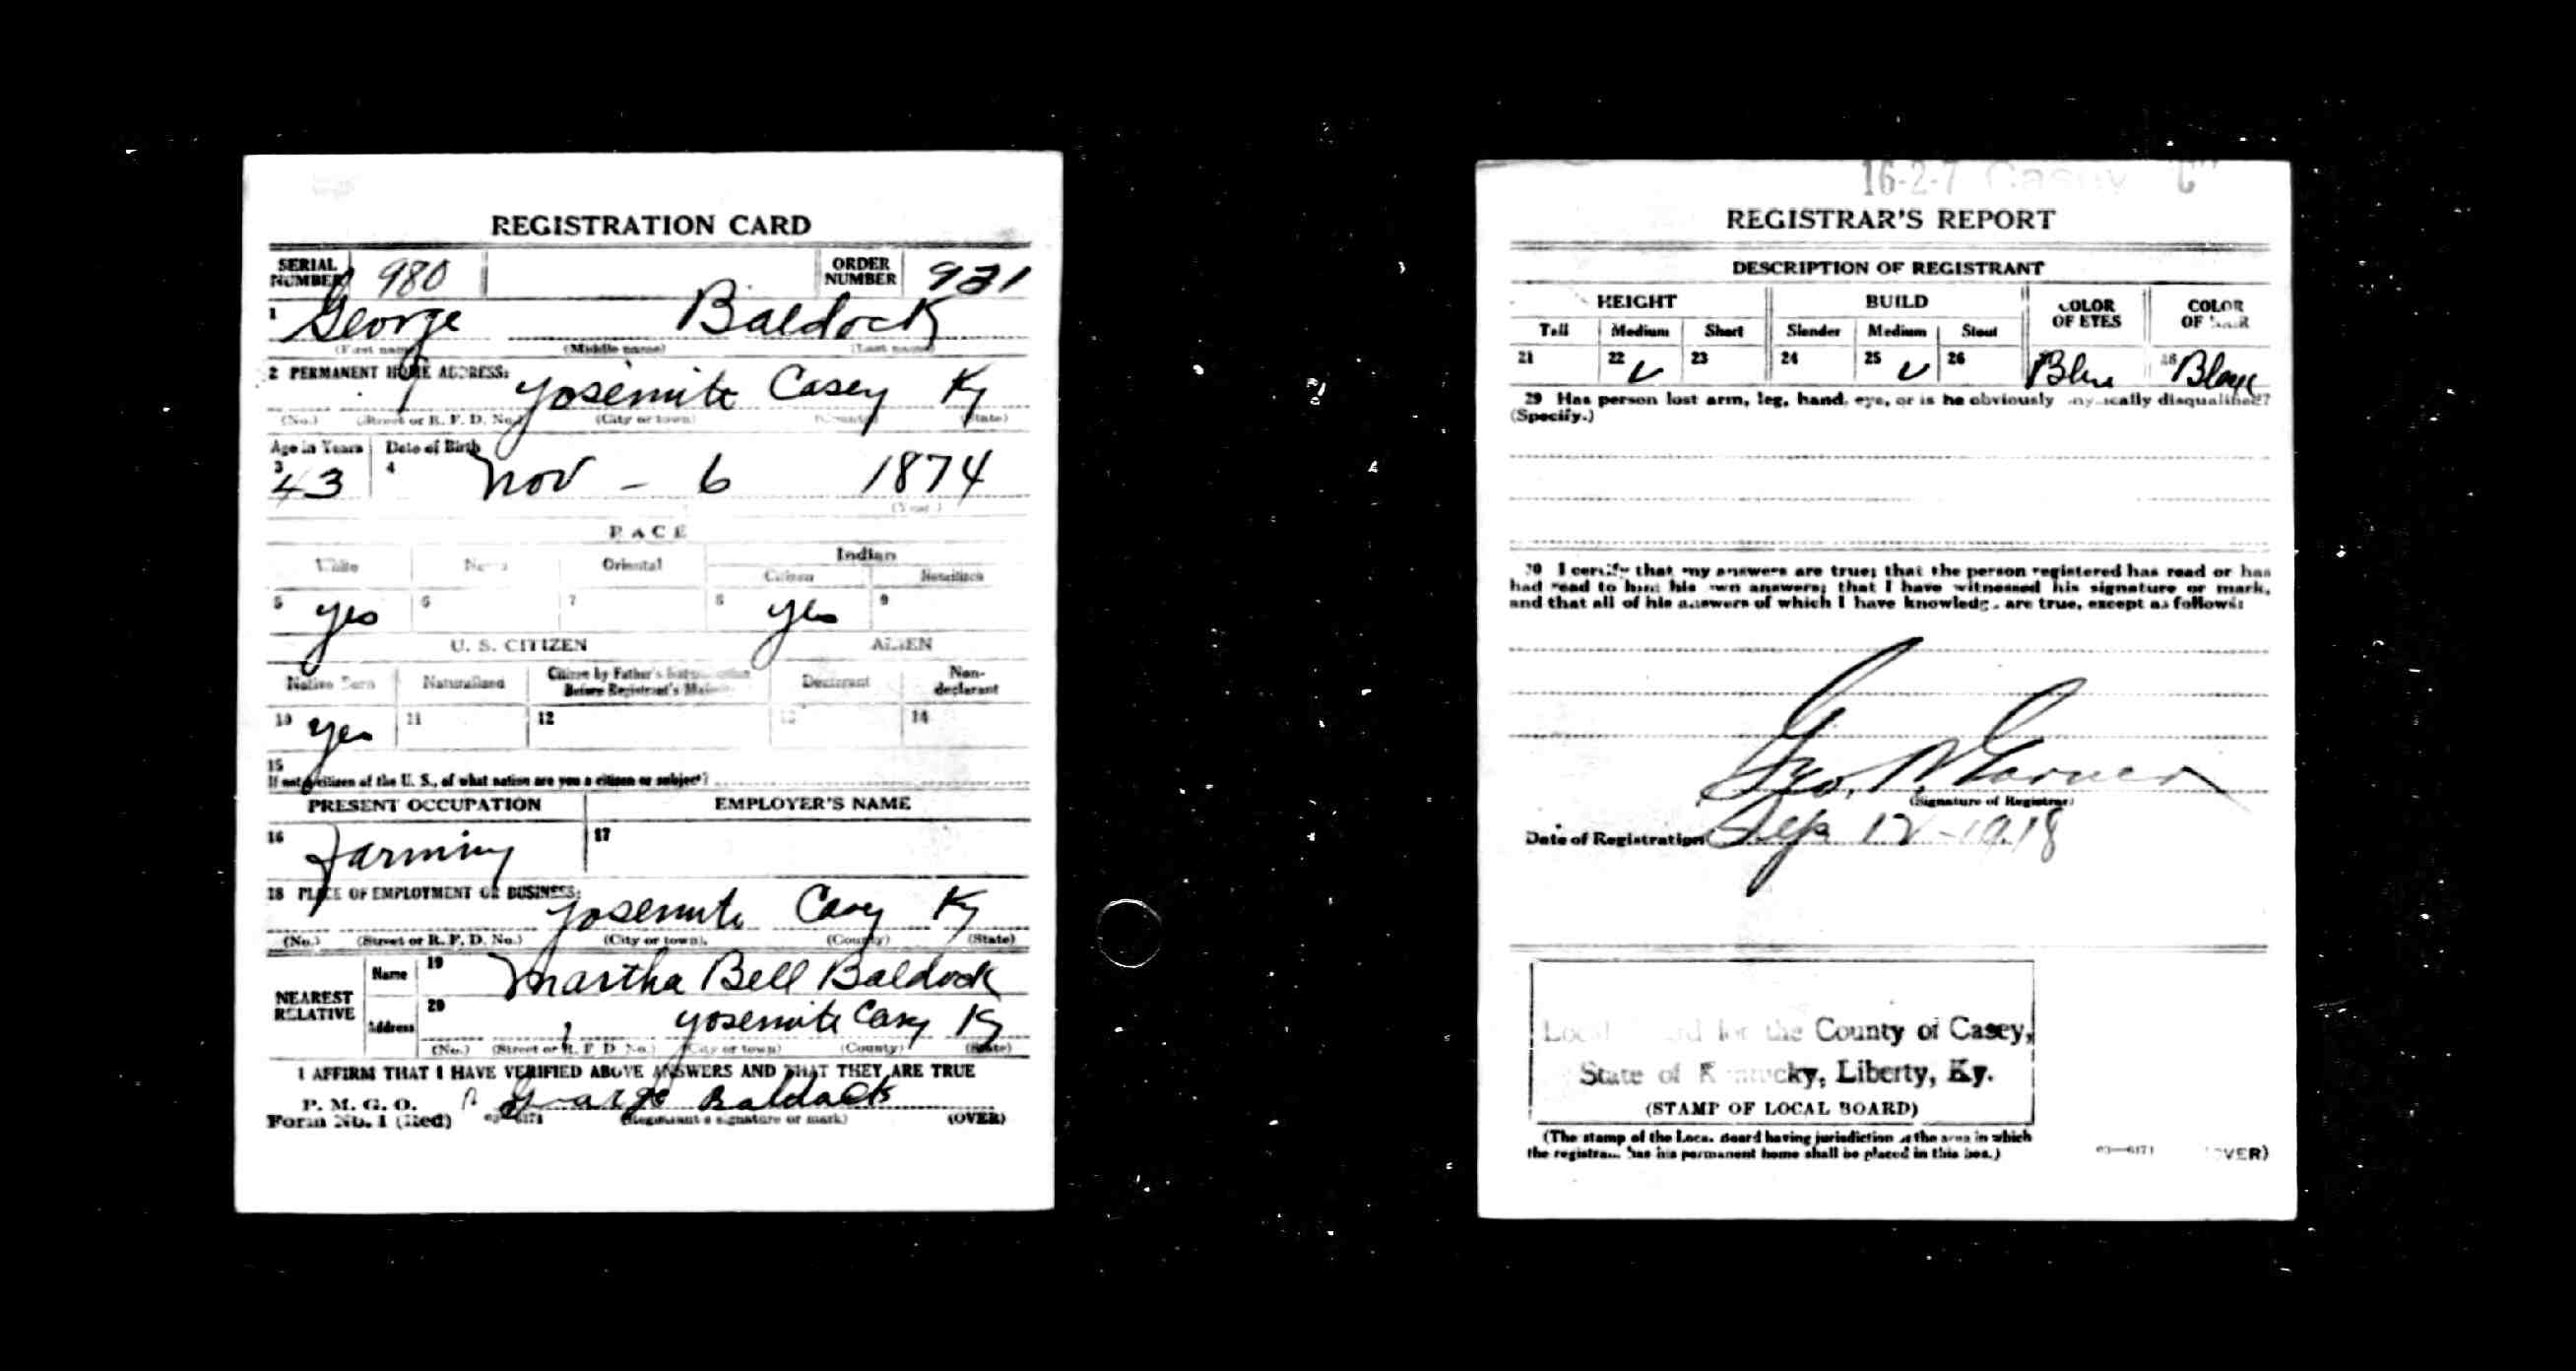 REGISTRATION CARD
SERIAL NUMBER 980 ORDER NUMBER 921
1 George Baldock
(First name) (Middle name) (Last name)
2 PERMANENT HOME ADDRESS: Yosemite Casey Ky
(No.) (Street or R. F. D. No.) (City or town) (County) (State)
Age in Years Date of Birth
3 43 4 Nov - 6 1874
(Year.)
RACE
White Negro Oriental Indian
Citizen Noncitizen
5 yes 6 7 8 yes 9
U. S. CITIZEN ALIEN
Native Born Naturalized Citizen by Father's Naturalization Before Registrant's Majority Declarant Non-declarant
10 yes 11 12 13 14
15
If not a citizen of the U. S., of what nation are you a citizen or subject?
PRESENT OCCUPATION EMPLOYER'S NAME
16 Farming 17
18 PLACE OF EMPLOYMENT OR BUSINESS:
Yosemite Casey Ky
(No.) (Street or R. F. D. No.) (City or town) (County) (State)
NEAREST RELATIVE Name 19 Martha Bell Baldock
Address 20 Yosemite Casey Ky
(No.) (Street or R. F. D. No.) (City or town) (County) (State)
I AFFIRM THAT I HAVE VERIFIED ABOVE ANSWERS AND THAT THEY ARE TRUE
P. M. G. O.
Form No. 1 (Red) 03—6171 George Baldock (OVER)
(Registrant's signature or mark)
16-2-7 Casey "C"
REGISTRAR'S REPORT
DESCRIPTION OF REGISTRANT
HEIGHT BUILD COLOR OF EYES COLOR OF HAIR
Tall Medium Short Slender Medium Stout
21 22 ✓ 23 24 25 ✓ 26 Blue 28
29 Has person lost arm, leg, hand, eye, or is he obviously physically disqualified?
(Specify.)
30 I certify that my answers are true; that the person registered has read or has
had read to him his own answers; that I have witnessed his signature or mark,
and that all of his answers of which I have knowledge are true, except as follows:
Geo.
(Signature of Registrar)
Date of Registration Sep 12 - 1918
Local Board for the County of Casey,
State of Kentucky, Liberty, Ky.
(STAMP OF LOCAL BOARD)
(The stamp of the Local Board having jurisdiction of the area in which
the registrant has his permanent home shall be placed in this box.)
03—6171 (OVER)